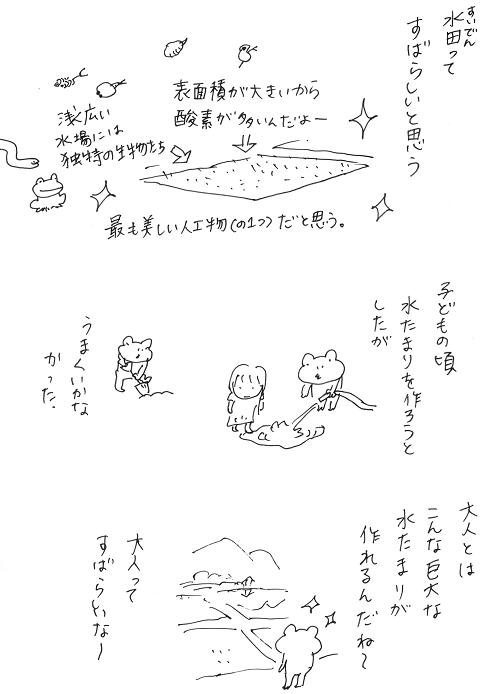 すいでん
水田って
すばらしいと思う
表面積が大きいから
酸素が多いんだよー
浅く広い
水場には
独特の生物たち
最も美しい人工物(の1つ)だと思う。
子どもの頃
水たまりを作ろうと
したが
うまくいかな
かった.
大人とは
こんな巨大な
水たまりが
作れるんだね〜
大人って
すばらしいなー